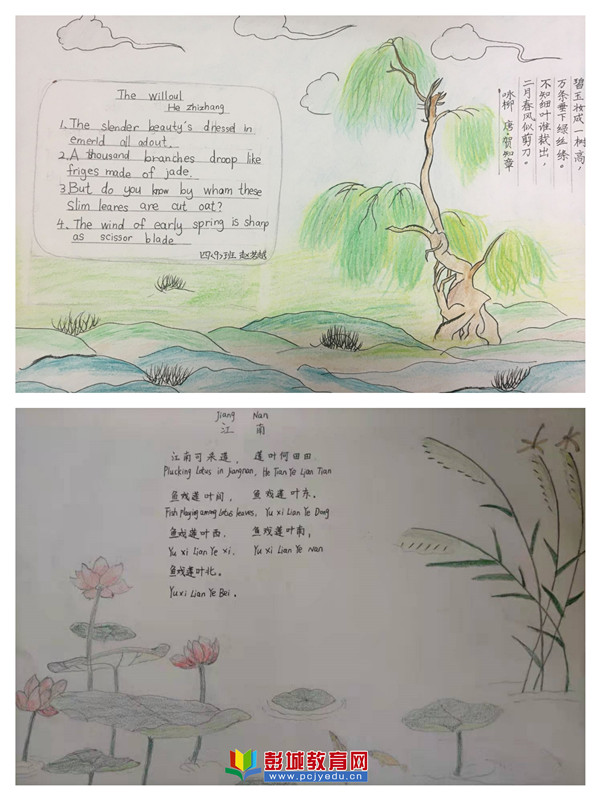 The Willoul
He zhizhang
1. The slender beauty's driessed in
emerld all adout.
2. A thousand branches droop like
friges made of jade.
3 But do you know by wham these
Slim leares are cut oat?
4. The wind of early spring is sharp
as scissor blade
碧玉妆成一树高，
万条垂下绿丝绦。
不知细叶谁裁出，
二月春风似剪刀。
咏柳 唐·贺知章
Jiang Nan
江 南
江南可采莲， 莲叶何田田
Plucking lotus in jiangnan, He Tian Ye Lian Tian
鱼戏莲叶间， 鱼戏莲叶东。
Fish Playing among lotus leaves, Yu xi Lian Ye Dong
鱼戏莲叶西， 鱼戏莲叶南，
Yu xi Lian Ye xi， Yu xi Lian Ye Nan
鱼戏莲叶北。
Yu xi Lian Ye Bei。
彭城教育网
www.pcjyedu.cn